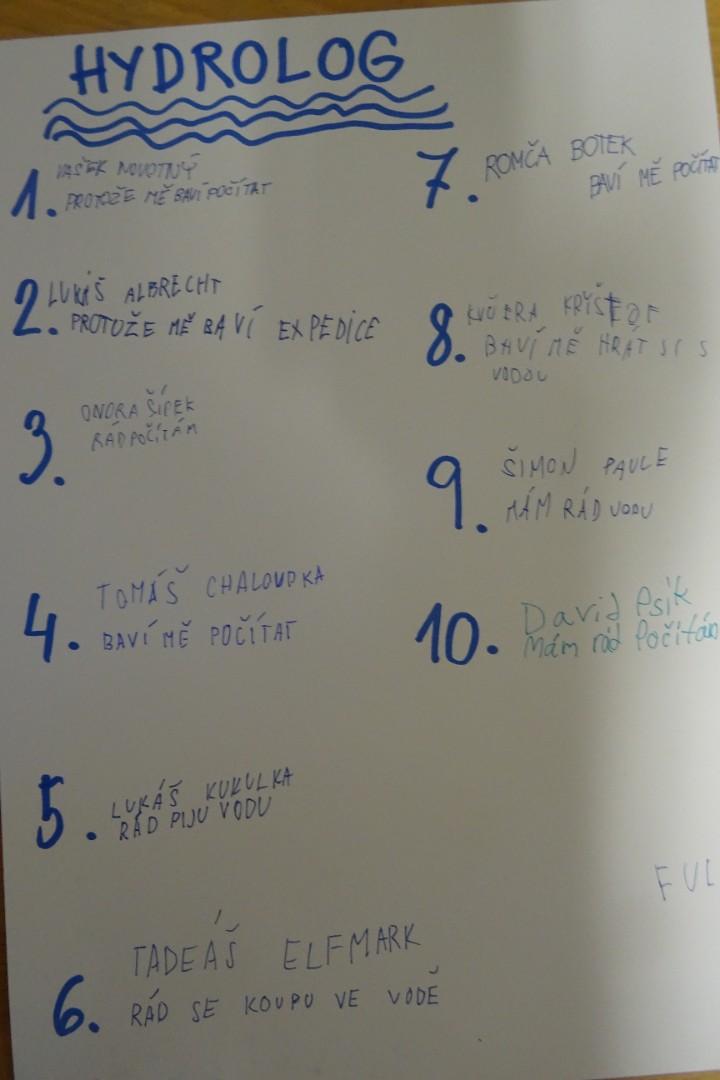 HYDROLOG
1. VAŠEK NOVOTNÝ
PROTOŽE MĚ BAVÍ POČÍTAT
2. LUKÁŠ ALBRECHT
PROTOŽE MĚ BAVÍ EXPEDICE
3. ONDRA ŠÍPEK
RÁD POČÍTÁM
4. TOMÁŠ CHALOUPKA
BAVÍ MĚ POČÍTAT
5. LUKÁŠ KUKULKA
RÁD PIJU VODU
6. TADEÁŠ ELFMARK
RÁD SE KOUPU VE VODĚ
7. ROMČA BOTEK
BAVÍ MĚ POČÍTAT
8. KUČERA KRYŠTOF
BAVÍ MĚ HRÁT SI S
VODOU
9. ŠIMON PAULE
MÁM RÁD VODU
10. David Psík
Mám rád Počítán
FUL